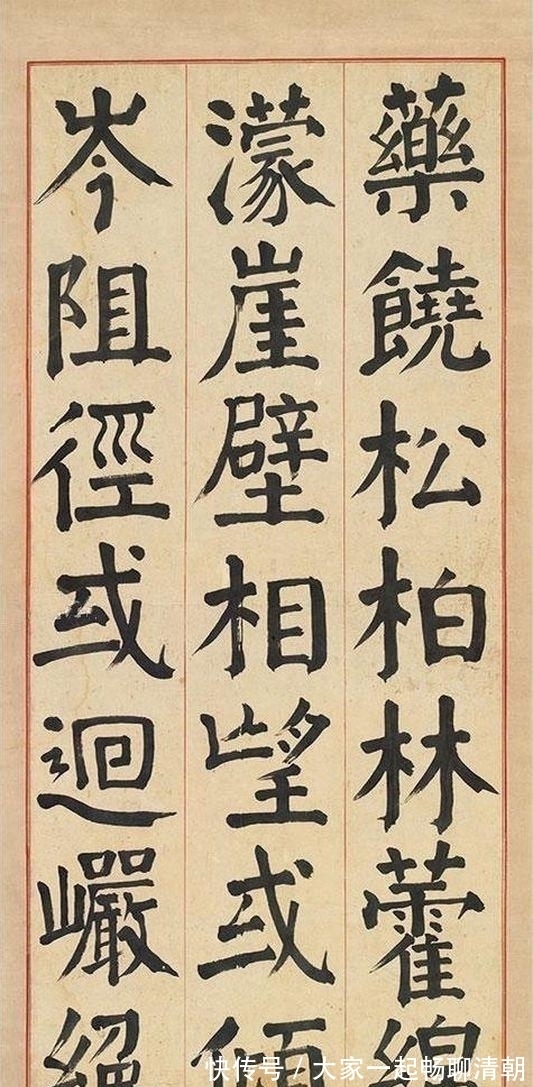 藥饒松柏林藿
濛崖壁相望或
岑阻徑或迴巗
快传号/大家一起畅聊清朝